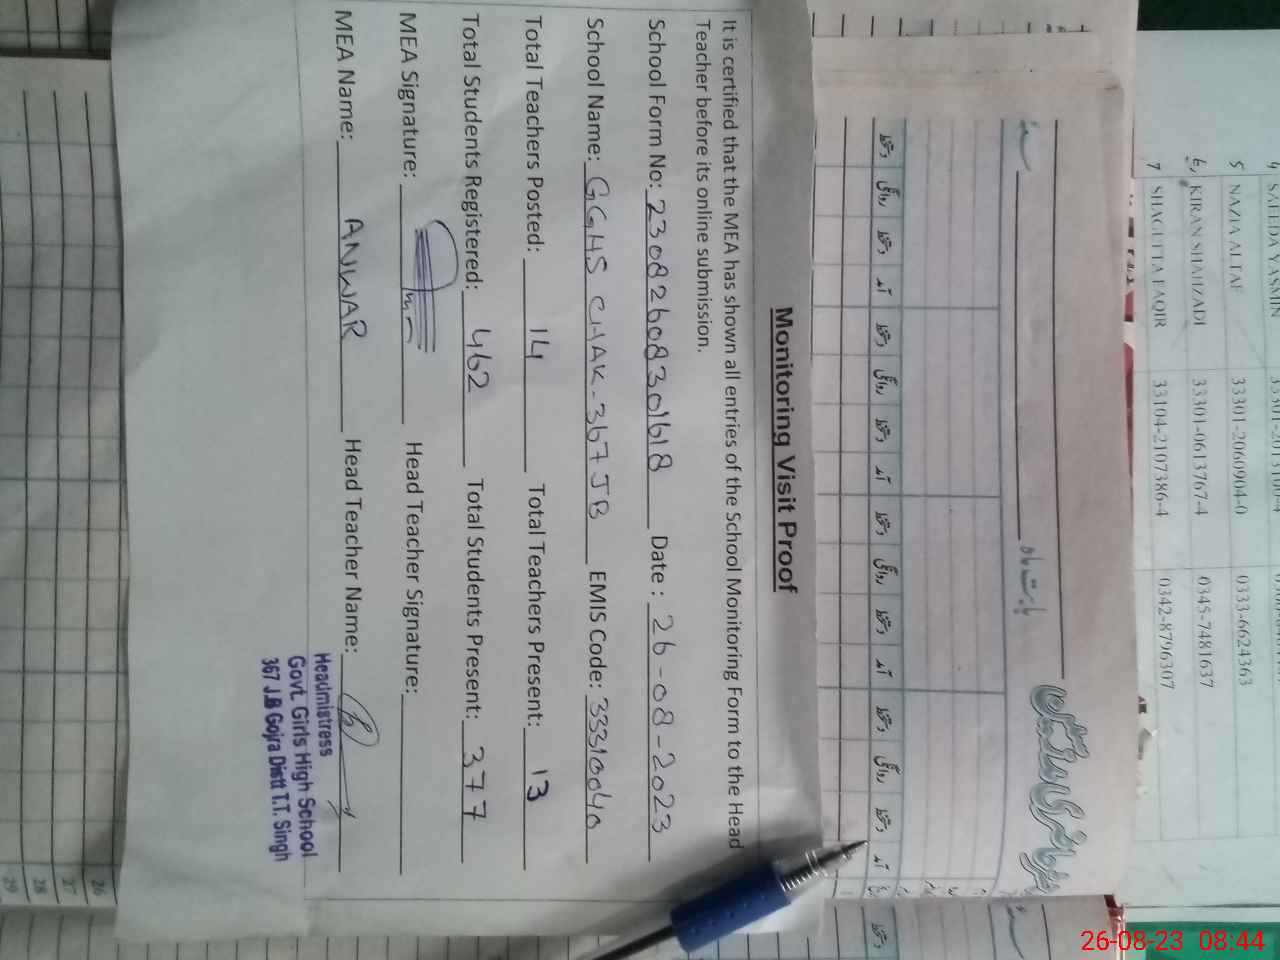 Monitoring Visit Proof
It is certified that the MEA has shown all entries of the School Monitoring Form to the Head
Teacher before its online submission.
School Form No: 23082608301618 Date : 26-08-2023
School Name: GGHS CHAK-367 JB EMIS Code: 33310040
Total Teachers Posted: 14 Total Teachers Present: 13
Total Students Registered: 462 Total Students Present: 377
MEA Signature: Head Teacher Signature:
MEA Name: ANWAR Head Teacher Name:
Headmistress
Govt. Girls High School
367 J.B Gojra Distt T.T. Singh
SAEEDA YASMIN
5 NAZIA ALTAF 33301-2060904-0 0333-6624363
6, KIRAN SHAHZADI 33301-0613767-4 0345-7481637
7 SHAGUFTA FAQIR 33104-2107386-4 0342-8796307
بابت ماہ
دستخط روانگی دستخط آمد دستخط روانگی دستخط آمد دستخط روانگی دستخط آمد دستخط روانگی دستخط آمد
26
27
28
29
26-08-23 08:44